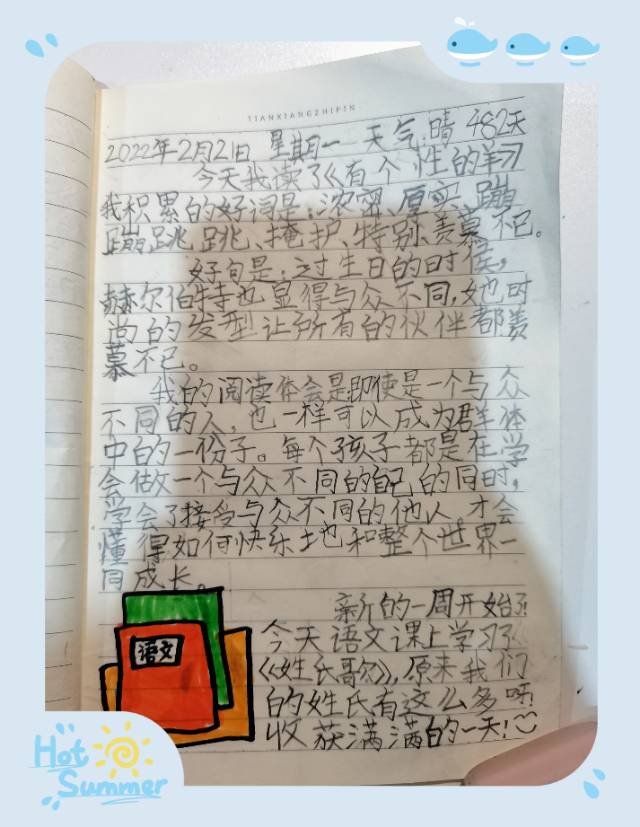 TIANXIANGZHIPIN
2022年2月21日 星期一 天气:晴 482天
今天我读了《有个性的羊》
我积累的好词是:浓密、厚实、蹦
蹦跳跳、掩护、特别、羡慕不已。
好句是:过生日的时候,
赫尔伯特也显得与众不同,她时
尚的发型让所有的伙伴都羡
慕不已。
我的阅读体会是即使是一个与众
不同的人,也一样可以成为群体
中的一份子。每个孩子都是在学
会做一个与众不同的自己的同时,
学会了接受与众不同的他人。才会
懂得如何快乐地和整个世界一
同成长。
新的一周开始了
今天语文课上学习了
《姓氏歌》,原来我们
的姓氏有这么多呀!
收获满满的一天!
语文
Hot
Summer